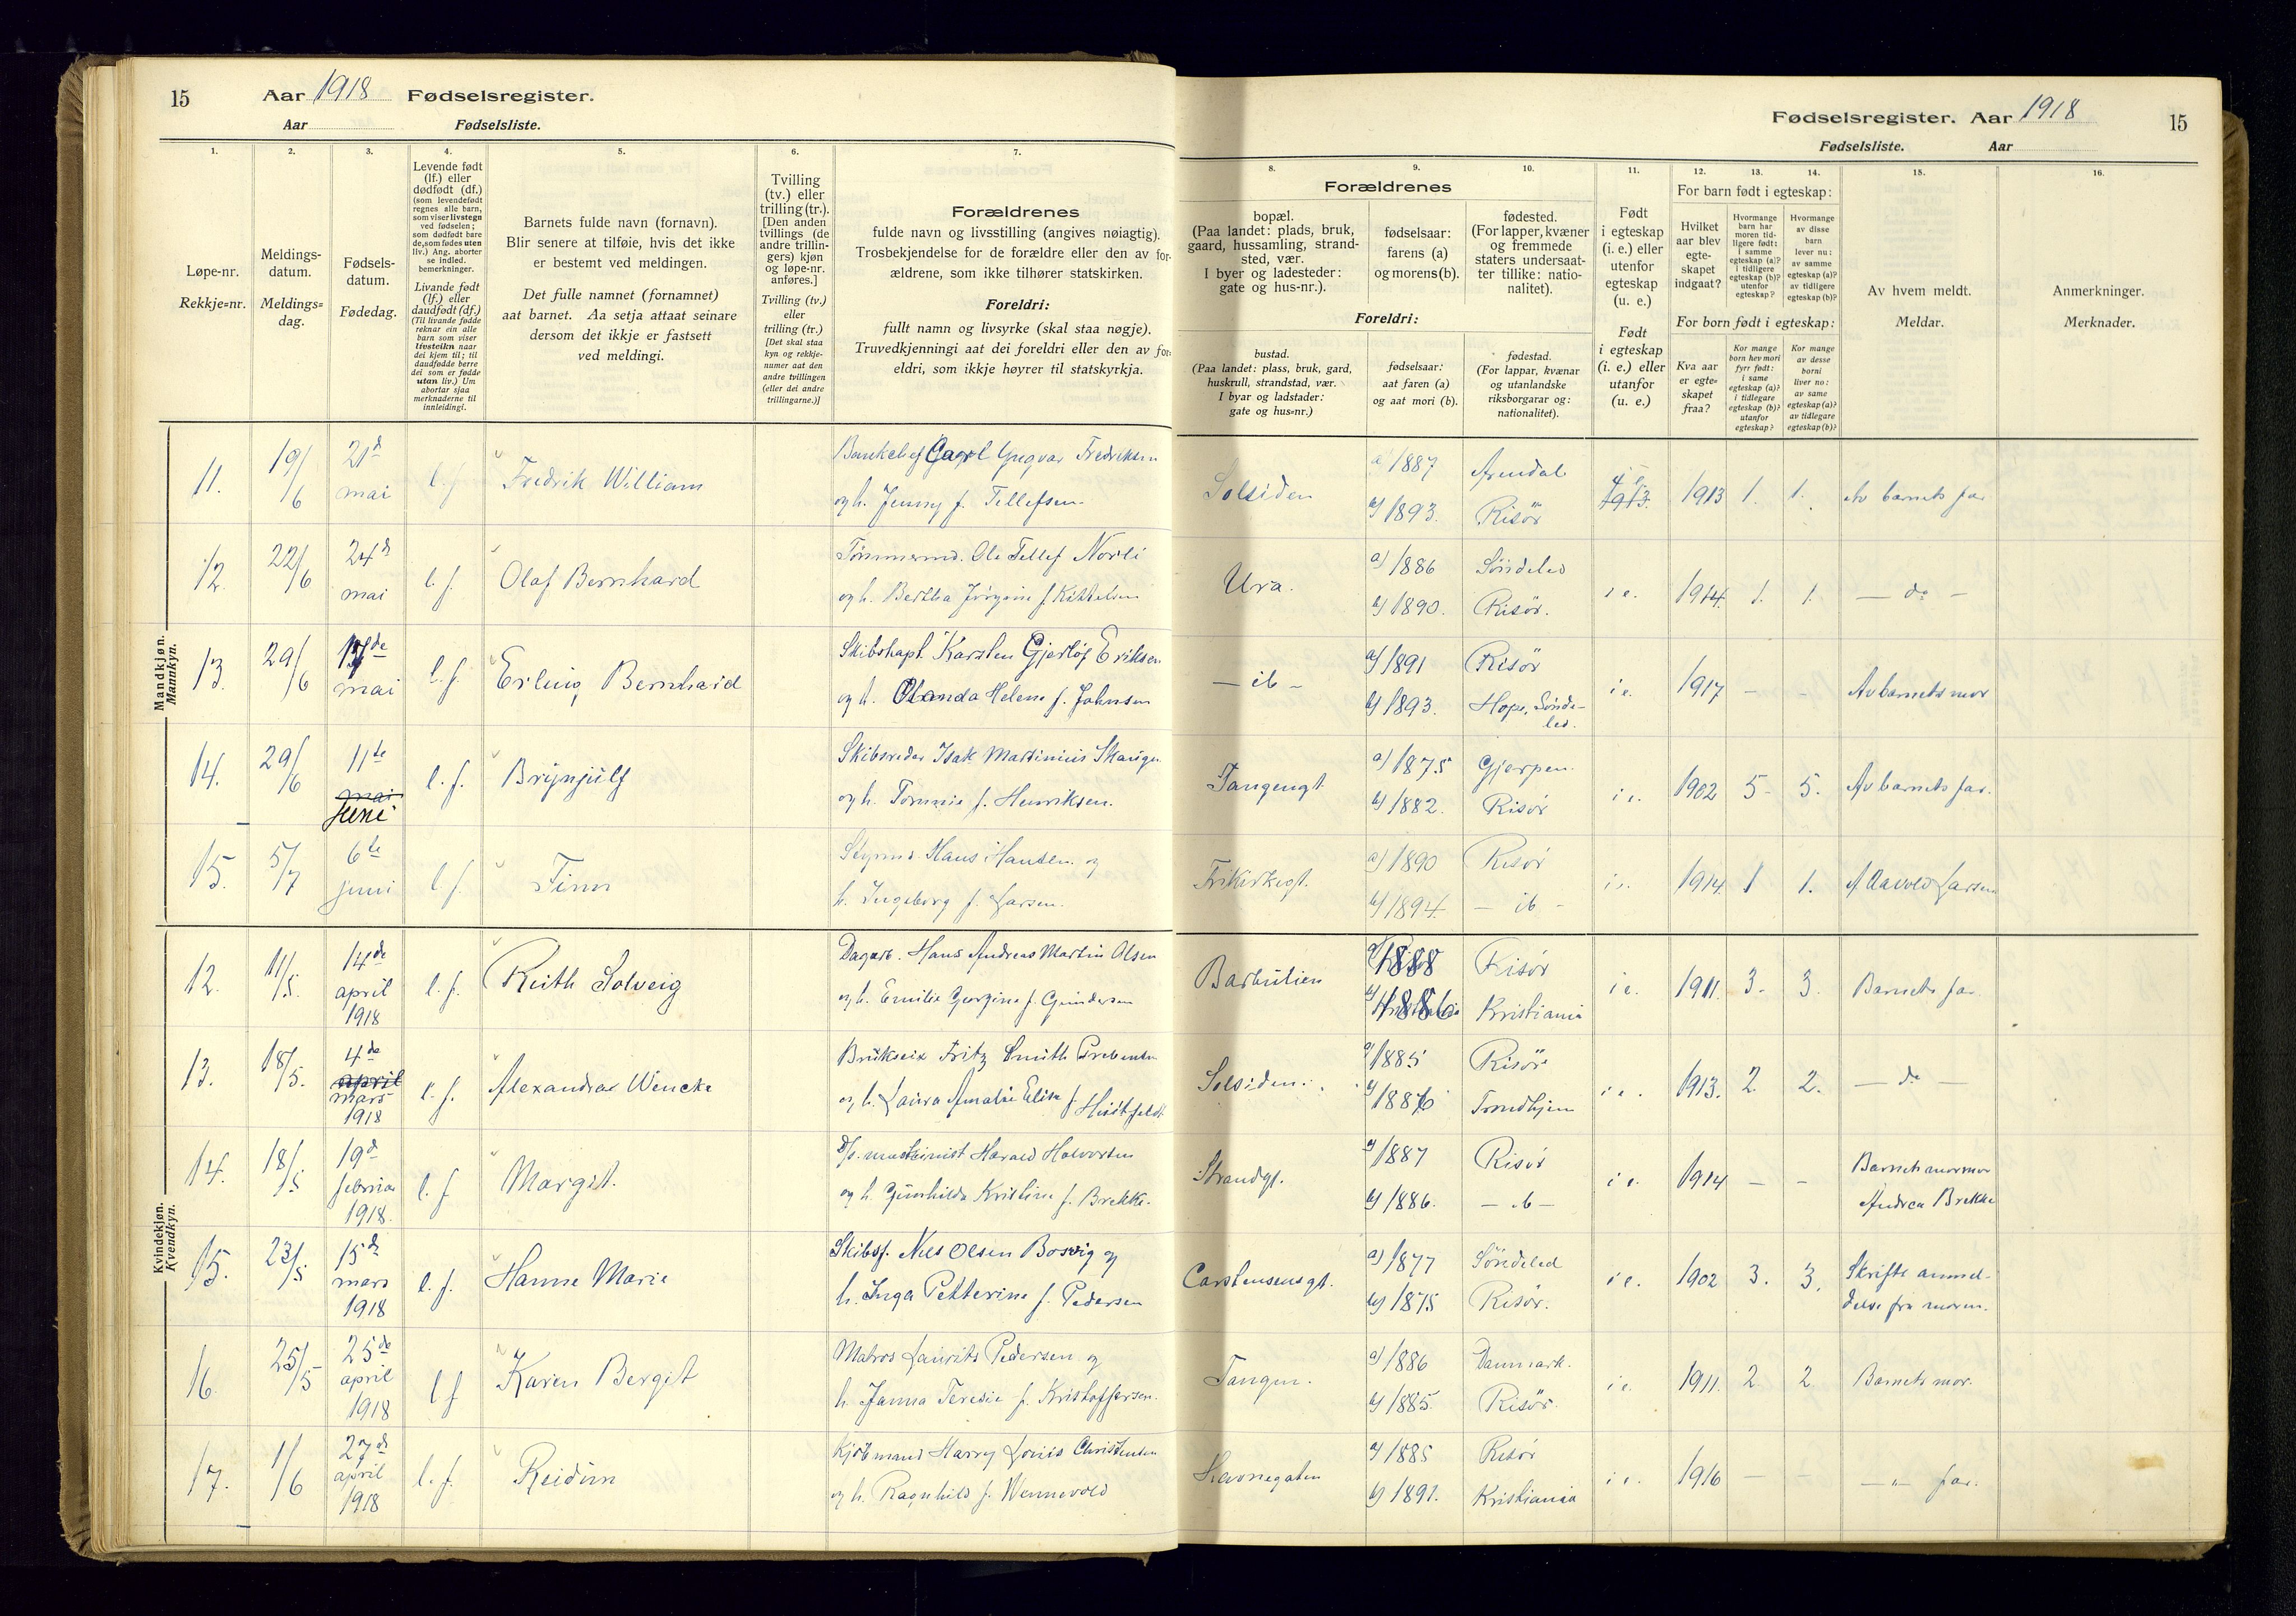 15 Aar 1918 Fødselsregister.
Aar Fødselsliste.
1. 2. 3. 4. 5. 6. 7.
Løpe-nr.
Rekkje=nr.
Meldings-
datum.
Meldings=
dag.
Fødsels-
datum.
Fødedag.
Levende født
(lf.) eller
dødfødt (df.)
(som levendefødt
regnes alle barn,
som viser livstegn
ved fødselen;
som dødfødt bare
de, som fødes uten
liv.) Ang. aborter
se indled.
bemerkninger.
Livande født
(lf.) eller
daudfødt (df.)
(Til livande fødde
reknar ein alle
barn som viser
livsteikn naar
dei kjem til; til
daudfødde berre
dei som er fødde
utan liv.) Um
abortar sjaa
merknaderne til
innleidingi.
Barnets fulde navn (fornavn).
Blir senere at tilføie, hvis det ikke
er bestemt ved meldingen.
Det fulle namnet (fornamnet)
aat barnet. Aa setja attaat seinare
dersom det ikkje er fastsett
ved meldingi.
Tvilling
(tv.) eller
trilling (tr.).
[Den anden
tvillings (de
andre trillin-
gers) kjøn
og løpe-nr.
anføres.]
Tvilling (tv.)
eller
trilling (tr.)
[Det skal staa
kyn og rekkje-
numer aat den
andre tvillingen
(eller dei andre
trillingarne.)]
Forældrenes
fulde navn og livsstilling (angives nøiagtig).
Trosbekjendelse for de forældre eller den av for-
ældrene, som ikke tilhører statskirken.
Foreldri:
fullt namn og livsyrke (skal staa nøgje).
Truvedkjenningi aat dei foreldri eller den av for-
eldri, som ikkje høyrer til statskyrkja.
Mandkjøn.
Mannkyn.
11. 19/6 21d mai l. f. Fredrik William
Bankchef Carl Yngvar Fredriksen
og h. Jenny f. Tellefsen
12. 22/6 24d mai l. f. Olaf Bernhard
Tømmermd. Ole Tellef Norli
og h. Bertha Jørgine f. Kittelsen
13. 29/6 de mai l. f. Erling Bernhard
Skibskapt. Karsten Gjerløf Eriksen
og h. Olanda Helene f. Johnsen
14. 29/6 11te mai juni l. f. Brynjulf
Skibsreder Isak Martinius Skaugen
og h. Tommie f. Henriksen.
15. 5/7 6te juni l. f. Finn
Styrmd. Hans Hansen og
h. Ingeborg f. Larsen.
Kvindekjøn.
Kvendkyn.
12. 11/5. 14de april 1918 l. f. Ruth Solveig
Dagarb. Hans Andreas Martin Olsen
og h. Emilie Georgine f. Gundersen
13. 18/5. 4de april mars 1918 l. f. Alexandra Wencke
Brukseier Fritz Smith Prebensen
og h. Laura Amalie Elise f. Huitfeldt
14. 18/5 19d februar 1918. l. f. Margit.
D/s. maskinist Harald Halvorsen
og h. Gunhilda Kristine f. Brekke.
15. 23/5 15de mars 1918 l. f. Hanne Marie
Skibsf. Nils Olsen Bosvig og
h. Inga Petterine f. Pedersen
16. 25/5 25de april 1918 l f Karen Bergit
Matros Laurits Pedersen og
h. Janna Teresie f. Kristoffersen.
17. 1/6 27de april 1918 l. f. Reidun
Kjøbmand Harry Louis Christensen
og h. Ragnhild f. Wennevold
Fødselsregister. Aar 1918 15
Fødselsliste. Aar
8. 9. 10. 11. 12. 13. 14. 15. 16.
Forældrenes
bopæl.
(Paa landet: plads, bruk,
gaard, hussamling, strand-
sted, vær.
I byer og ladesteder:
gate og hus-nr.).
fødselsaar:
farens (a)
og morens (b).
fødested.
(For lapper, kvæner
og fremmede
staters undersaat-
ter tillike: natio-
nalitet).
Foreldri:
bustad.
(Paa landet: plass, bruk, gard,
huskrull, strandstad, vær.
I byar og ladstader:
gate og hus=nr.)
fødselsaar:
aat faren (a)
og aat mori (b).
fødestad.
(For lappar, kvænar
og utanlandske
riksborgarar og:
nationalitet).
Født
i egteskap
(i. e.) eller
utenfor
egteskap
(u. e.)
Født
i egteskap
(i. e.) eller
utanfor
(u. e.)
For barn født i egteskap:
Hvilket
aar blev
egte-
skapet
indgaat?
Hvormange
barn har
moren tid-
ligere født:
i samme
egteskap (a)?
i tidligere
egteskap (b)?
utenfor
egteskap?
Hvormange
av disse
barn
lever nu:
av samme
egteskap (a)?
av tidligere
egteskap (b)?
For born født i egteskap:
Kva aar
er egte=
skapet
fraa?
Kor mange
born hev mori
fyrr født:
i same
egteskap (a)?
i tidlegare
egteskap (b)?
utanfor
egteskap?
Kor mange
av desse
borni
liver no:
av same
egteskap (a)?
av tidlegare
egteskap (b)?
Av hvem meldt.
Meldar.
Anmerkninger.
Merknader.
Solsiden a) 1887 Arendal i e. 1913. 1913 1. 1. Av barnets far
b) 1893. Risör
Ura. a) 1886 Söndeled i e. 1914. 1. 1. — do —
b) 1890. Risör.
— ib — a) 1891 Risör i e. 1917 – – Av barnets mor
b) 1893. Hope, Sönde-
led.
Tangengt. a) 1875 Gjerpen. i e. 1902 5- 5. Av barnets far.
b) 1882. Risör
Frikirkegt. a) 1890 Risör i e. 1914 1 1. Larsen
b) 1894. — ib —
Barbulien a) 1888 Risör i e. 1911. 3. 3. Barnets far.
b) 1886 Kristiania
Solsiden. a) 1885 Risör i e. 1913. 2. 2. — do —
b) 1886 Trondhjem
Strandgt. a) 1887 Risör i e. 1914 — – Barnets mormor
b) 1886. — ib — Andrea Brekke
Carstensensgt. a) 1877 Söndeled i e. 1902 3. 3. Skriftl. anmel-
b) 1875 Risör. delse fra moren.
Tangen. a) 1886 Danmark. i e. 1911. 2 2. Barnets mor.
b) 1885. Risör.
Havnegaten a) 1885 Risör i e. 1916 — – — „ — far.
b) 1891. Kristiania